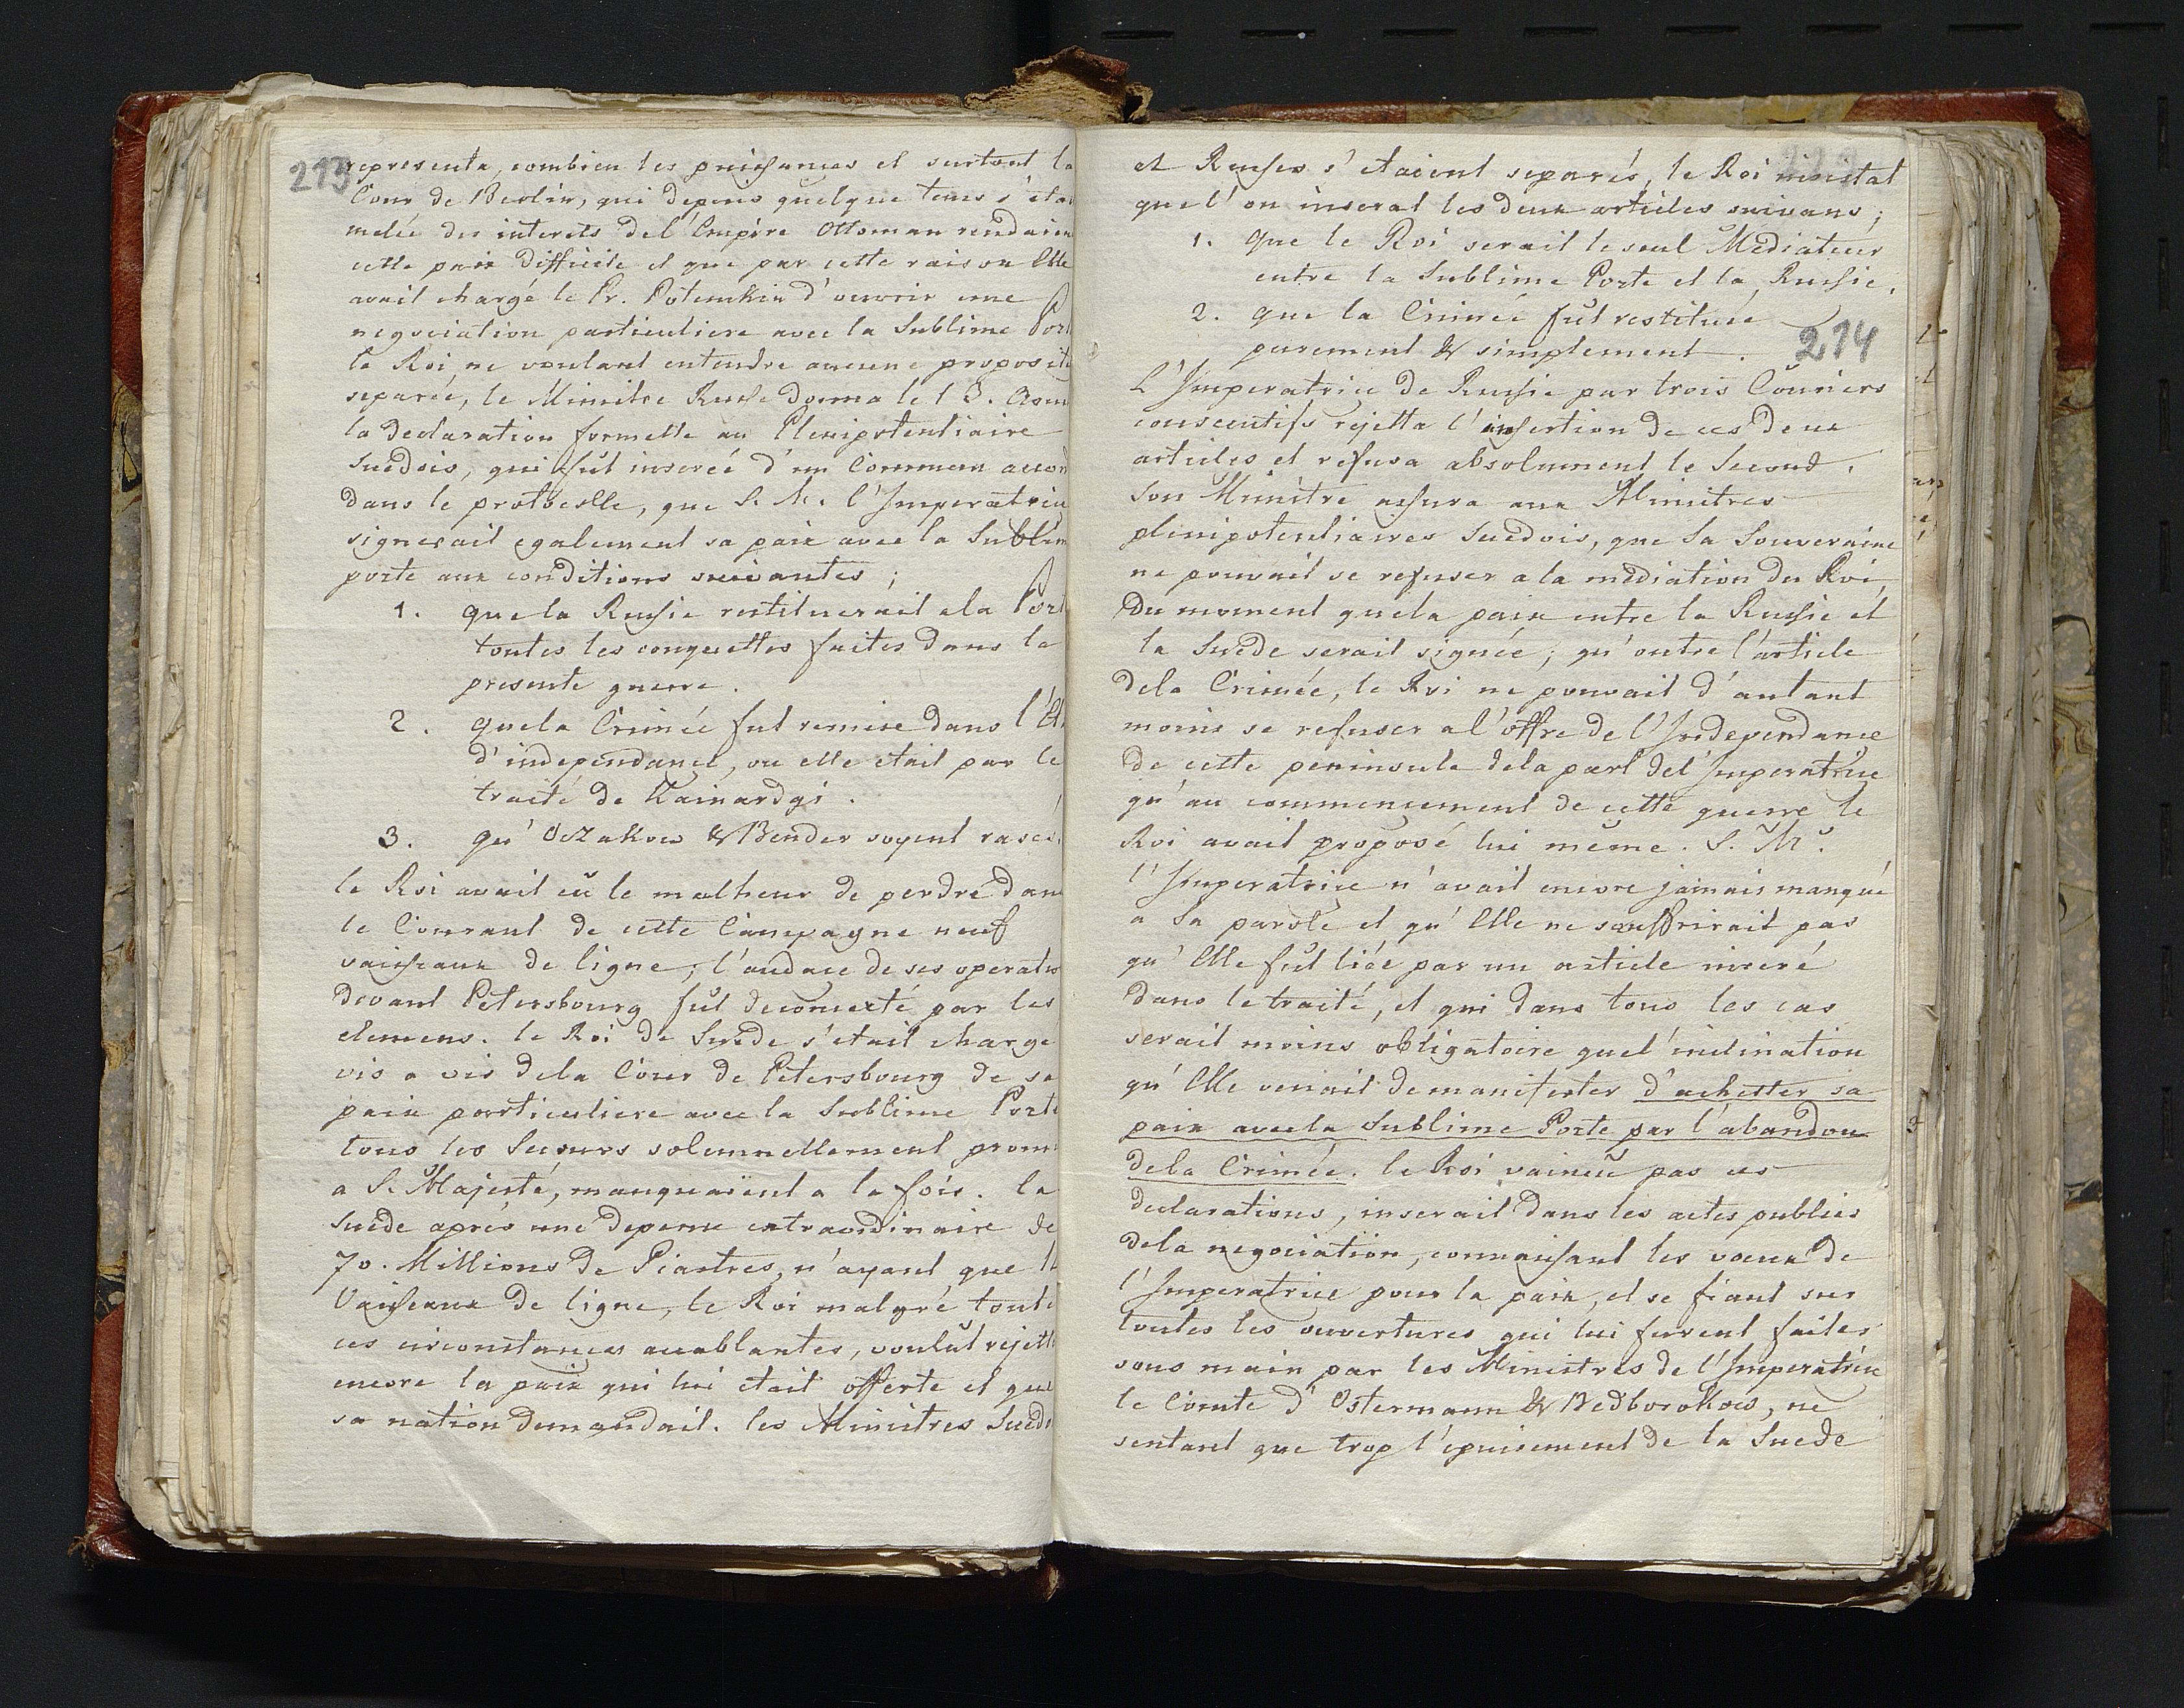 213
representa, combien les puissances et surtout la
Cour de Berlin, qui depuis quelque tems s'etai
melée des interets del'Empire Ottoman rendaien
cette paix difficile et que par cette raison Elle
avait chargé le Pr. Potemkin d'ouvrir une
negociation particuliere avec la Sublime Port
le Roi, ne voulant entendre aucune proposit
separée, le Ministre Russe donna le 13. Aou
la declaration formelle au Plenipotentiaire
Suedois, qui fut inserée d'un Commun accor
dans le protocolle, que S. M. l'Imperatrice
signerait egalement sa paix avec la Sublim
porte aux conditions suivantes;
1. que la Russie restituerait ala Port
toutes les conquettes faites dans la
presente guerre.
2. quela Crimée fut remise dans l'Et
d'independance, ou elle etait par le
traité de Kainardgi.
3. qu'Oczakow & Bender soyent rasés.
le Roi avait eû le malheur de perdre dans
le Courant de cette Campagne neuf
vaisseaux de ligne; l'audace de ses operatio
devant Petersbourg fut deconcerté par les
elemens. le Roi de Suede s'etait charge
vis a vis dela Cour de Petersbourg de sa
paix particuliere avec la Sublime Porte
tous les Secours solemnellement prom
a S. Majesté, manquaient a la fois. la
Suede aprés une depense extraordinaire de
70. Millions de Piastres, n'ayant que 1
Vaisseaux de ligne, le Roi malgré toute
ces circonstances accablantes, voulut rejett
encore la paix qui lui etait offerte et que
sa nation demandait. les Ministres Suedo
et Russes s'etaient separés, le Roi insistat
quel'on inserat les deux articles suivans;
1. Que le Roi serait le seul Mediateur
entre la Sublime Porte et la Russie.
2. que la Crimée fut restituée
purement & simplement.
214
L'Imperatrice de Russie par trois Couriers
consecutifs rejetta l'insertion de ces deux
articles et refusa absolument le Second.
Son Ministre assura aux Ministres
plenipotentiaires Suedois, que Sa Souveraine
ne pouvait se refuser a la mediation du Roi,
du moment quela paix entre la Russie et
la Suede serait signée; qu'outre l'article
dela Crimée, le Roi ne pouvait d'autant
moins se refuser a l'offre de l'Independance
de cette peninsule dela part del'Imperatrice
qu'au commencement de cette guerre le
Roi avait proposé lui meme. S. M.
l'Imperatrice n'avait encore jamais manqué
a Sa parole et qu'Elle ne souffrirait pas
qu'Elle fut liée par un article inseré
dans le traité, et qui dans tous les cas
serait moins obligatoire quel'inclination
qu'Elle venait de manifester d'achetter sa
paix avecla Sublime Porte par l'abandon
dela Crimée. le Roi vaincu pas ces
declarations, inserait dans les actes publies
dela negociation, connaissant les voeux de
l'Imperatrice pour la paix, et se fiant sur
toutes les ouvertures qui lui furent faites
sous main par les Ministres de l'Imperatrice
le Comte d'Ostermann & Bedborokow, ne
sentant que trop l'epuisement de la Suede